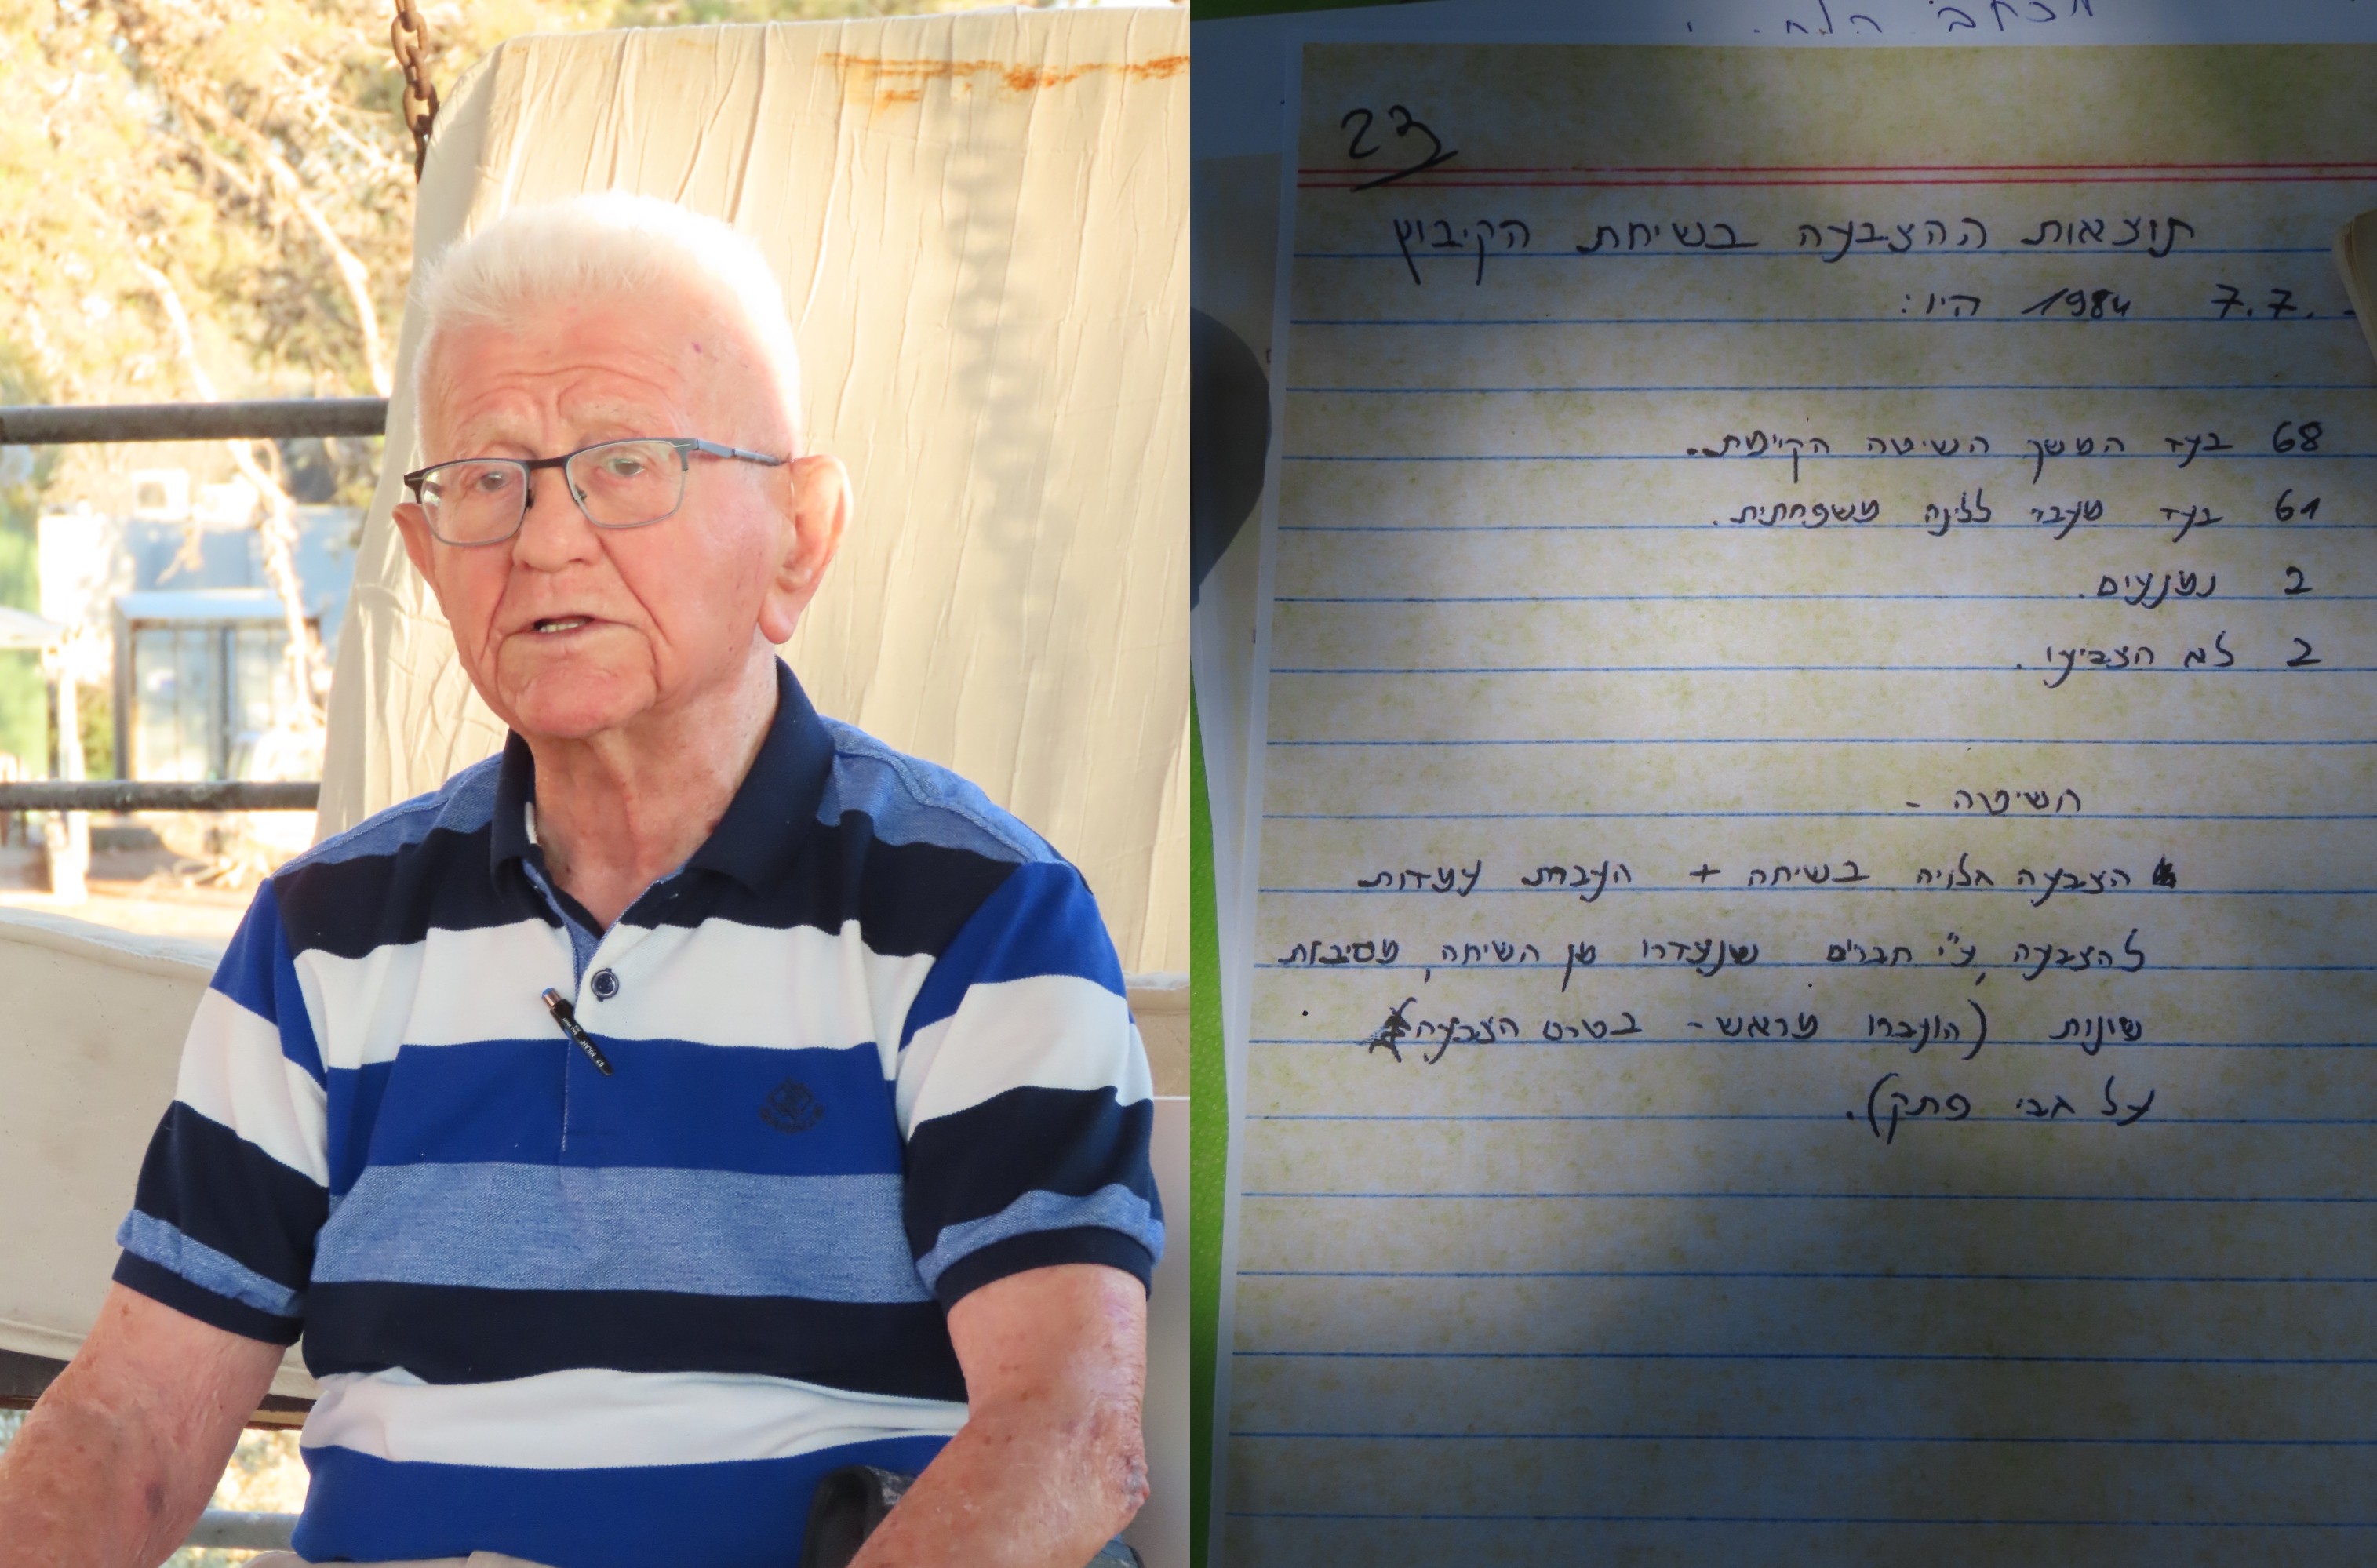 23
תוצאות ההצבעה בשיחת הקיבוץ
7.7. 1984 היו:
68 בעד המשך השיטה הקיימת.
61 בעד מעבר ללינה משפחתית.
2 נמנעים.
2 לא הצביעו.
השיטה -
הצבעה גלויה בשיחה + העברת עמדות
להצבעה, ע"י חברים שנעדרו מן השיחה, מסיבות
שונות (הועברו מראש - בטרם הצבעה
על גבי פתק).